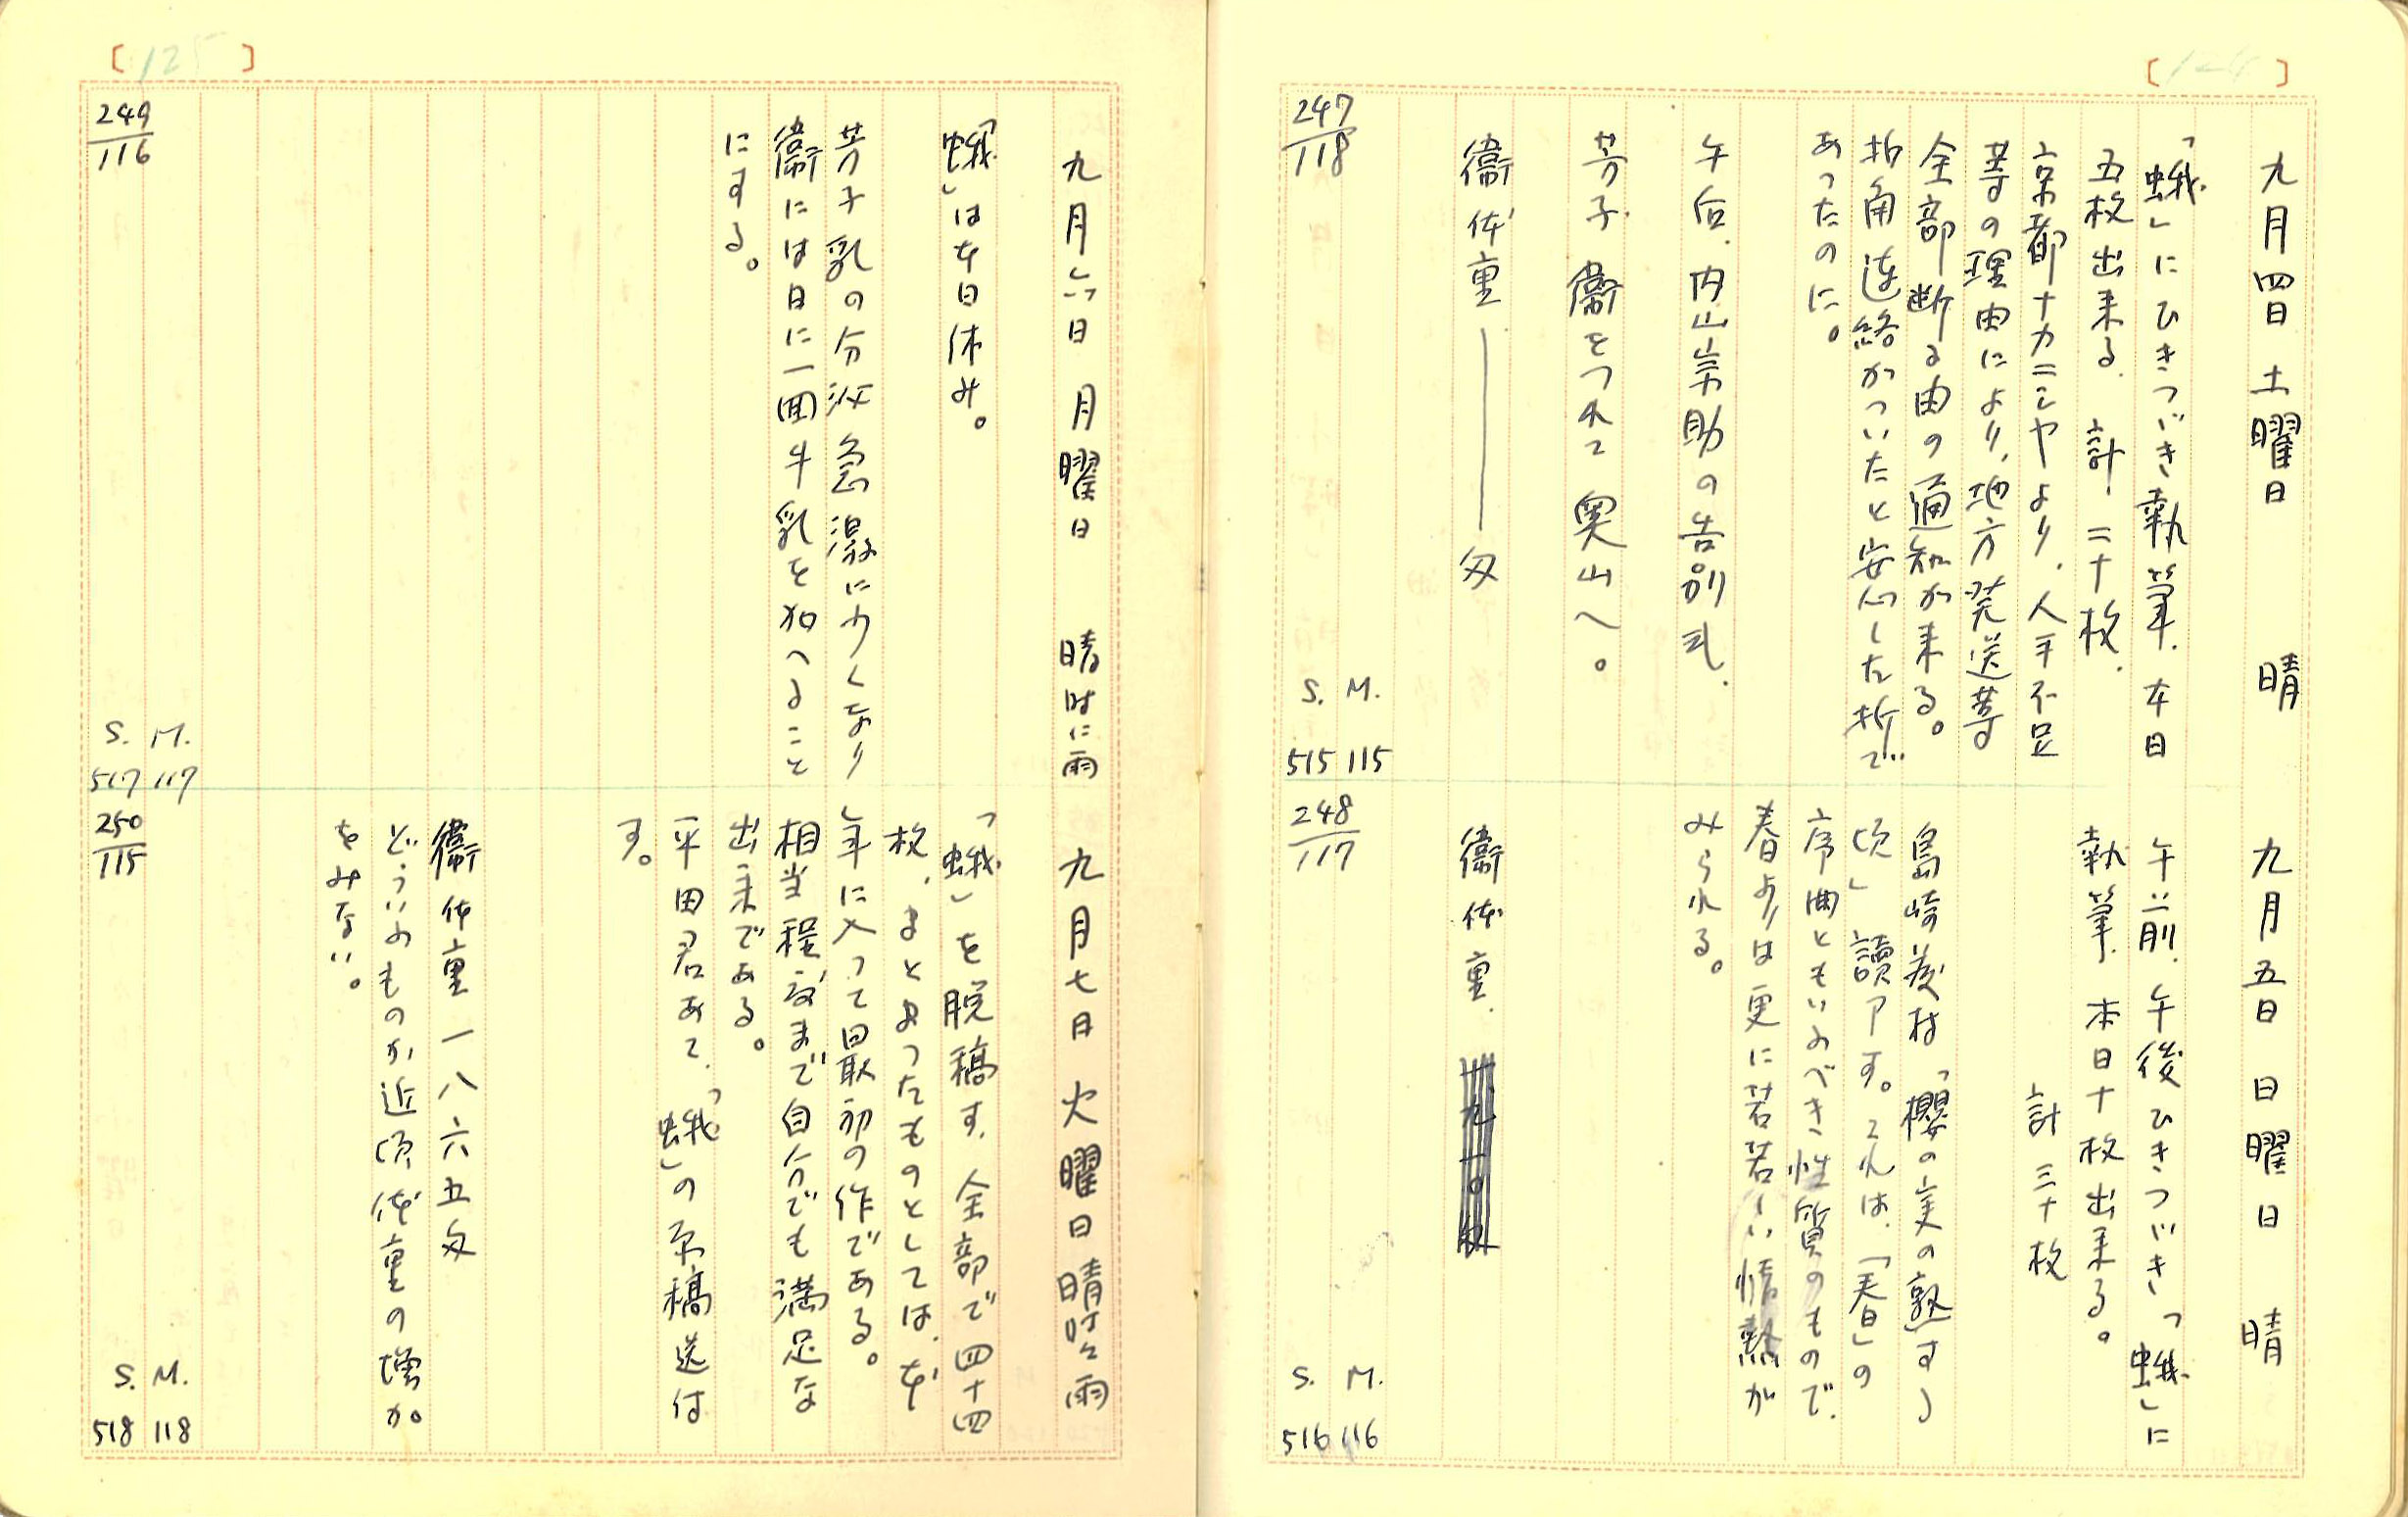 [124]
九月四日 土曜日 晴
「蛾」にひきつゞき執筆.本日
五枚出来る.計 二十枚.
京都ナカニシヤより.人手不足
等の理由により、地方発送等
全部断る由の通知が来る。
折角連絡がついたと安心した折で
あったのに。
午后.内山崇助の告別式.
芳子 衞をつれて奥山へ。
衞体重 ――― 匁
247
118
S. M.
515 115
九月五日 日曜日 晴
午前.午後ひきつゞき「蛾」に
執筆.本日十枚出来る。
計 三十枚
島崎藤村「櫻の実の熟する
頃」讀了す。これは.「春」の
序曲ともいふべき性質のもので.
春よりは更に若若しい情熱が
みられる。
衞体重.
248
117
S. M.
516 116
[125]
九月六日 月曜日 晴時に雨
「蛾」は本日休み。
芳子乳の分泌急激に少くなり
衞には日に一囬牛乳を加へること
にする。
249
116
S. M.
517 117
九月七日 火曜日 晴時々雨
「蛾」を脱稿す.全部で四十四
枚.まとまったものとしては.本
年に入って最初の作である。
相当程度まで自分でも満足な
出来である。
平田君あて.「蛾」の原稿送付
す。
衞体重 一八六五匁
どういふものか近頃体重の増加
をみない。
250
115
S. M.
518 118